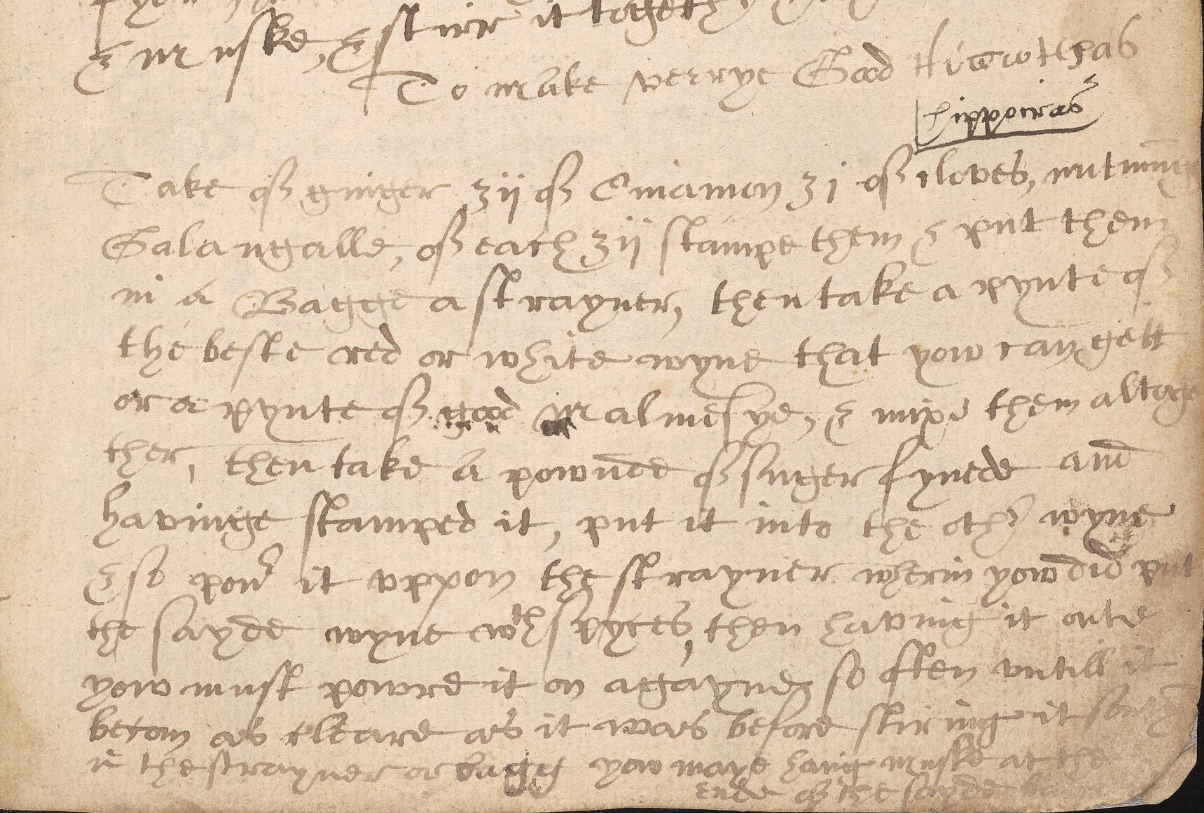 & muske, & stirr it togeth
To make verrye Good Hicrothas
hippocras
Take of ginger ʒij of Cinamon ʒi of cloves, nutming
Galangalle, of each ʒij stampe them & put them
in a Bagge a strayner, then take a pynte of
the beste red or white wyne that yow can gett
or a pynte of good Malmesye, & mixe them altoge
ther, then take a pownde of suger fynede and
havinge stamped it, put it into the othr wyne
& so powr it uppon the strayner wherin yow did put
the sayde wyne wth spyces, then having it oute
yow must powre it on agayne so ften untill it
becom as cleare as it was before stiring it
in the strayner or bagg yow maye hang muske at the
ende of the sayde